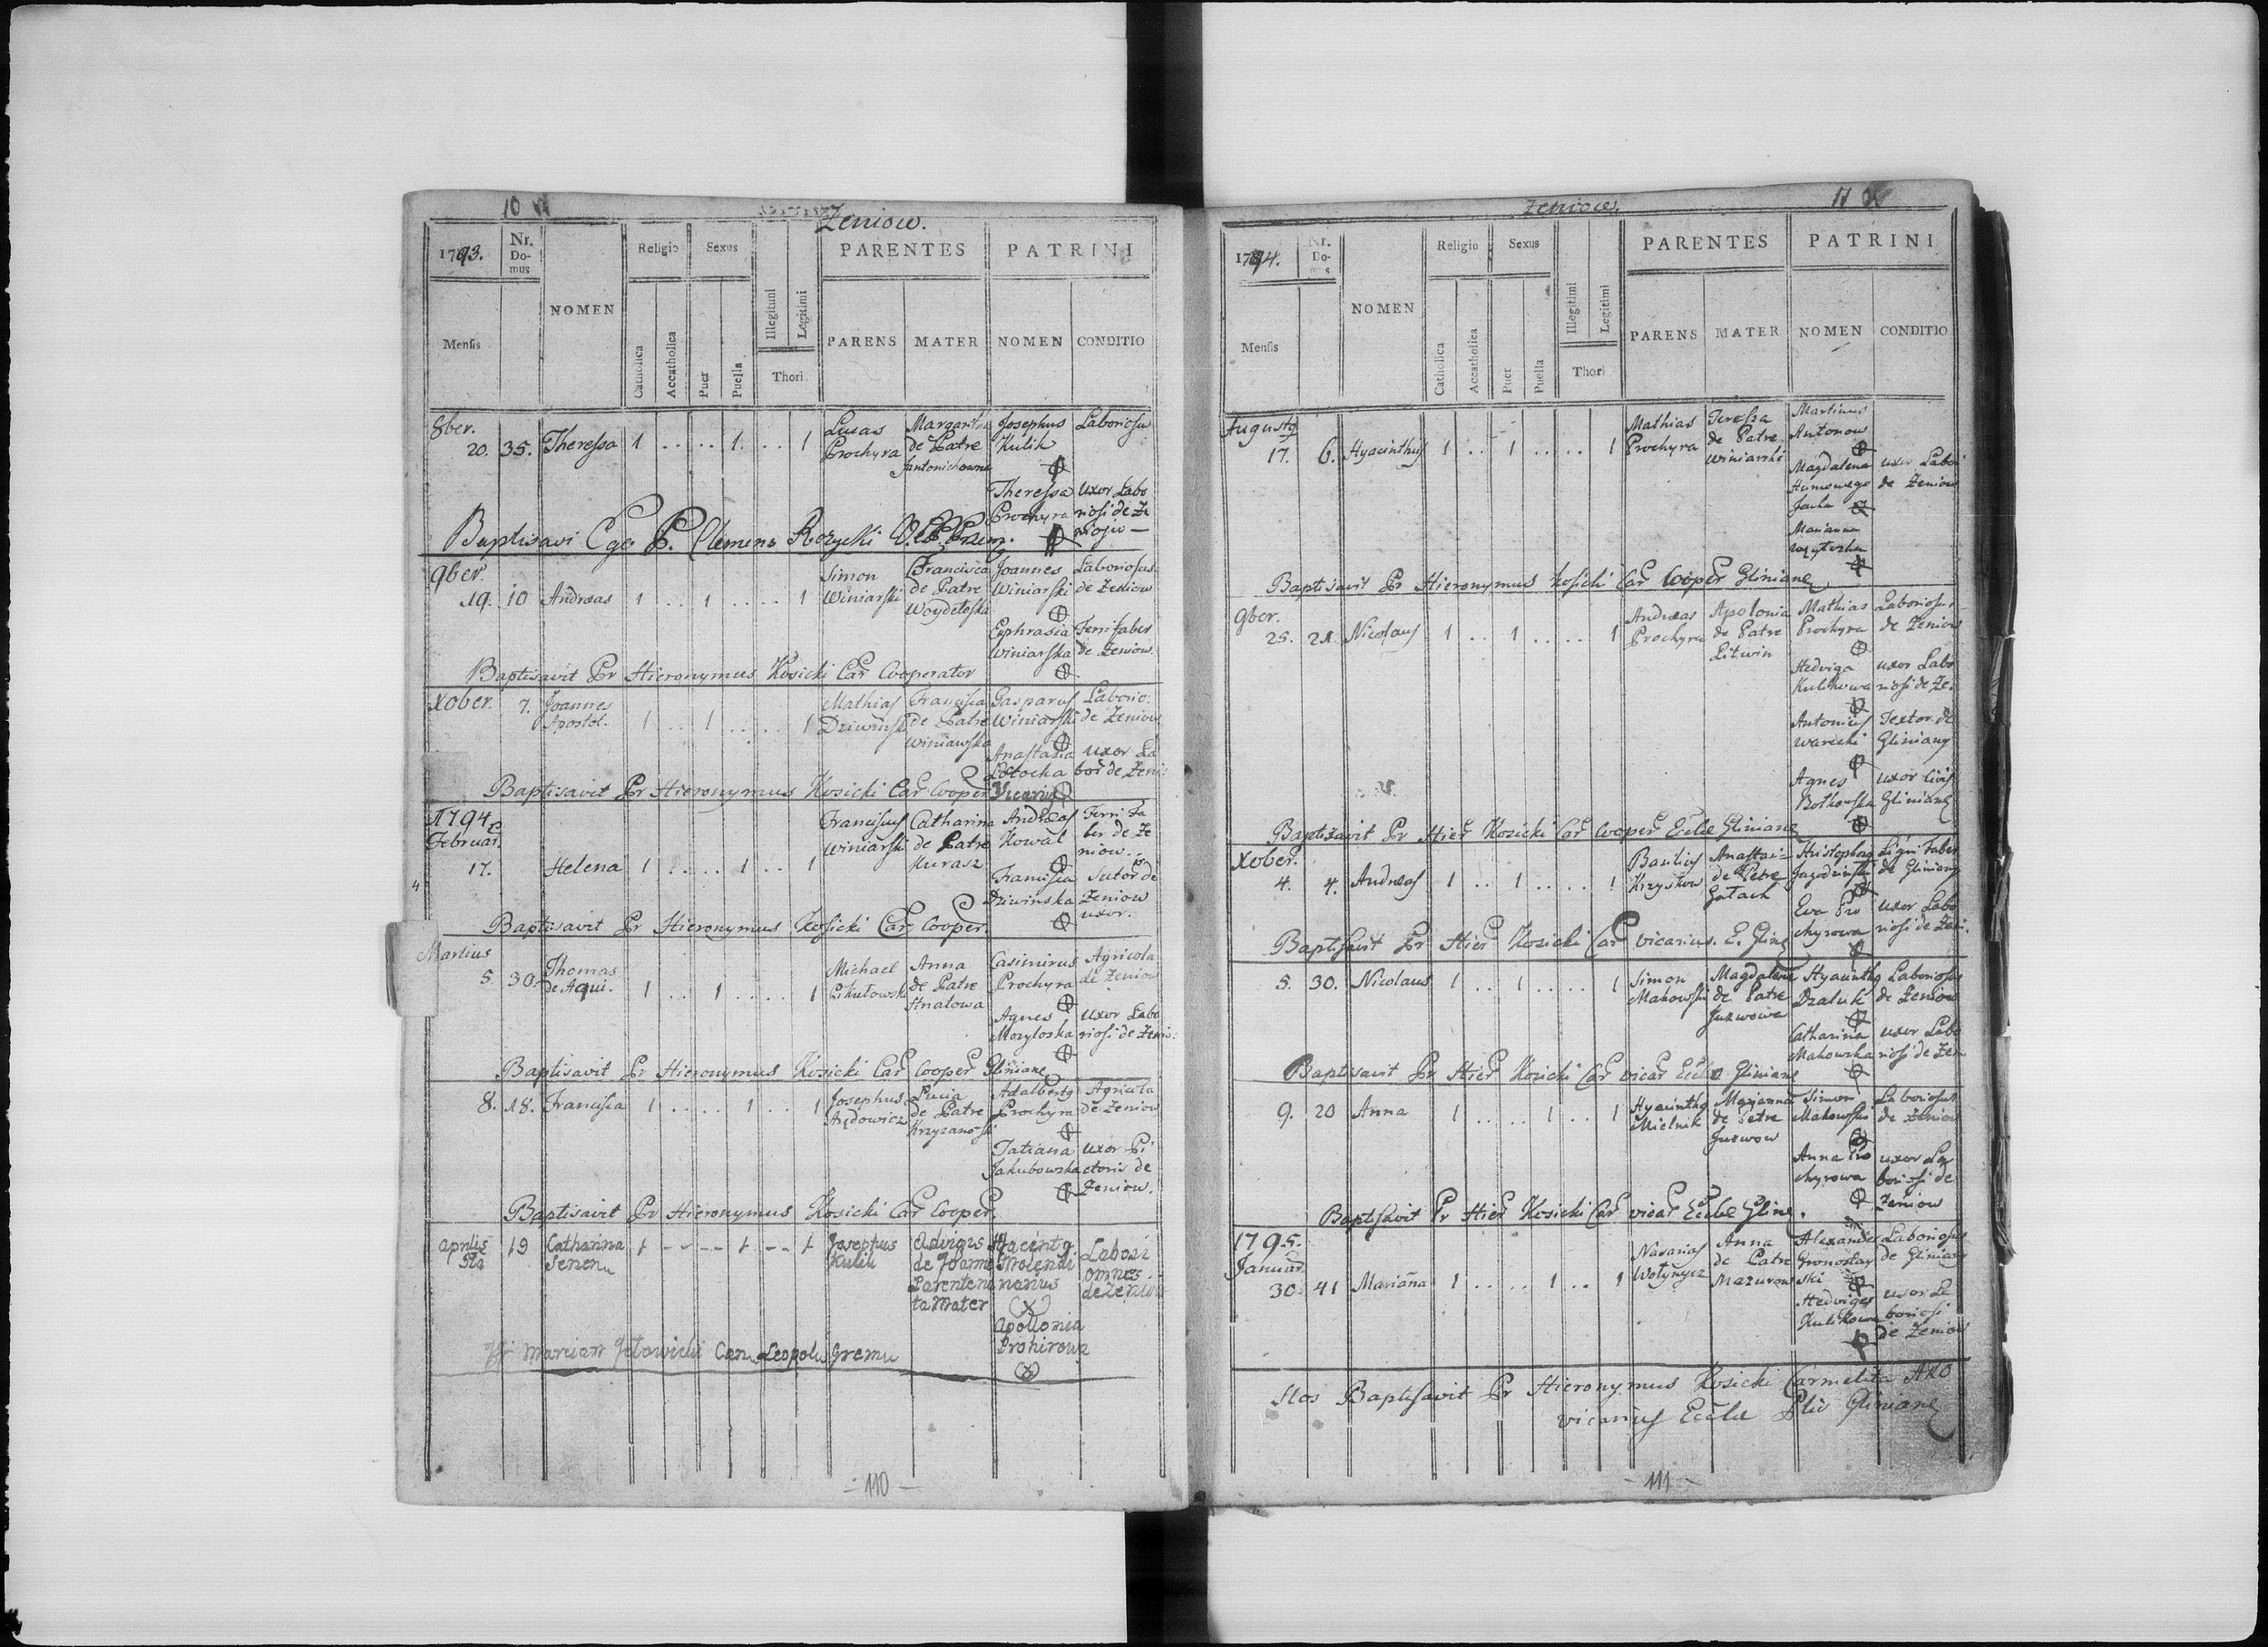 10
Zeniow.
1793.
Nr. Do-mus
NOMEN
Religio
Sexus
PARENTES
PATRINI
Mensis
Catholica
Accatholica
Puer
Puella
Illegitimi
Legitimi
Thori
PARENS
MATER
NOMEN
CONDITIO
8ber.
20. 35. Theressa 1 .. .. 1. .. 1 Lucas Margaritha Josephus Laboriosus
Prochyra de Patre Kulik
Theressa uxor Labo
Prochyra riosi de Ze
niow
Baptisavi Ego P. Clemens Rozycki
9ber.
19. 10 Andreas 1 .. 1 .. .. 1 Simon Francisca Joannes Laboriosus
Winiarski de Patre Winiarski de Zeniow
Woydetoska
Ephrasia Ferrifaber
Winiarska de Zeniow.
Baptisavit Pr Hieronymus Kosicki Car Cooperator
Xober. 7. Joannes Apostol. 1 .. 1 .. .. 1 Mathias Francisca Gasparus Laborio:
Dziwinski de Patre Winiarski de Zeniow
Winiawska
Anastasia uxor La
Potocka bor de Zeni
Baptisavit Pr Hieronymus Kosicki Car Cooper Vicarius
1794
Februar.
17. Helena 1 .. .. 1 .. 1 Franciscus Catharina Andreas Ferri Fa
Winiarski de Patre Kowal ber de Ze
Kurasz niow.
Francisca Sutor de
Dziwinska Zeniow
uxor.
Baptisavit Pr Hieronymus Kosicki Car Cooper.
Martius
5. 30. Thomas de Aqui. 1 .. 1 .. .. 1 Michael Anna Casimirus Agricola
Pikulowski de Patre Prochyra de Zeniow
Hnatowa
Agnes uxor Labo
Mozyloska riosi de Zenio:
Baptisavit Pr Hieronymus Kosicki Car Cooper Gliniane
8. 18. Francisca 1 .. .. 1 .. 1 Josephus Lucia Adalbertg Agricola
Arędowicz de Patre Prochyra de Zeniow
Krzyzanoski
Tatiana uxor Pi
Jakubowska ctoris de
Zeniow.
Baptisavit Pr Hieronymus Kosicki Car Cooper.
Aprilis
19 Catharina Senen 1 - - - - 1 - - 1 Josephus Advigis Hiacintg
Kulik de Joanne Molendi Labori
Parentem narius omnes
ta Mater de Zeniow
Apollonia
Prohirowa
Marcian
- 110 -
Zeniow.
11
1794.
Nr. Do-mus
NOMEN
Religio
Sexus
PARENTES
PATRINI
Mensis
Catholica
Accatholica
Puer
Puella
Illegitimi
Legitimi
Thori
PARENS
MATER
NOMEN
CONDITIO
Augustg
17. 6. Hyacinthus 1 .. 1 .. .. 1 Mathias Teressa Martinus
Prochyra de Patre Antonow
Winiarski
Magdalena uxor Labori
de Zeniow
Marianna
Baptisavit Pr Hieronymus Kosicki Car Cooper Gliniane
9ber.
25. 21. Nicolaus 1 .. 1 .. .. 1 Andreas Apolonia Mathias Laboriosus
Prochyra de Patre Prochyra de Zeniow
Litwin
Hedviga uxor Labo
Kulikowa riosi de Ze.
Antonius Textor de
Warecki Gliniany
Agnes uxor Civis
Botkowska Gliniane
Baptisavit Pr Hier Kosicki Car Cooper Eccle Gliniane
Xober.
4. 4. Andreas 1 .. 1 .. .. 1 Basilius Anastasia Hristophorg Ligni Faber
Krzyskow de Patre Jagodzinski de Gliniany
Gatach
Eva Pro uxor Labo
chyrowa riosi de Zeni.
Baptisavit Pr Hier Kosicki Car vicarius. E. Gline
5. 30. Nicolaus 1 .. 1 .. .. 1 Simon Magdalena Hyacinthg Laboriosus
Makowski de Patre Dzaluk de Zeniow
Juzwowa
Catharina uxor Labo
Makowska riosi de Zen
Baptisavit Pr Hier Kosicki Car vicar Eccle Gliniane
9. 20 Anna 1 .. .. 1 .. 1 Hyacinthg Marianna Simon Laboriosus
Mielnik de Patre Makowski de Zeniow
Juzwow
Anna Pro uxor La
chyrowa boriosi de
Zeniow
Baptisavit Pr Hier Kosicki Car vicar Eccle Gline.
1795.
Januar
30 41 Mariana 1 .. .. 1 .. 1 Nazarius Anna Alexander Laboriosus
Wolynycz de Patre Gronostay de Gliniany
Mazurow ski
Hedviges uxor La
Kulikowa boriosi
de Zeniow
Hos Baptisavit Pr Hieronymus Kosicki Carmelita
vicarius Eccle Gliniane
- 111 -